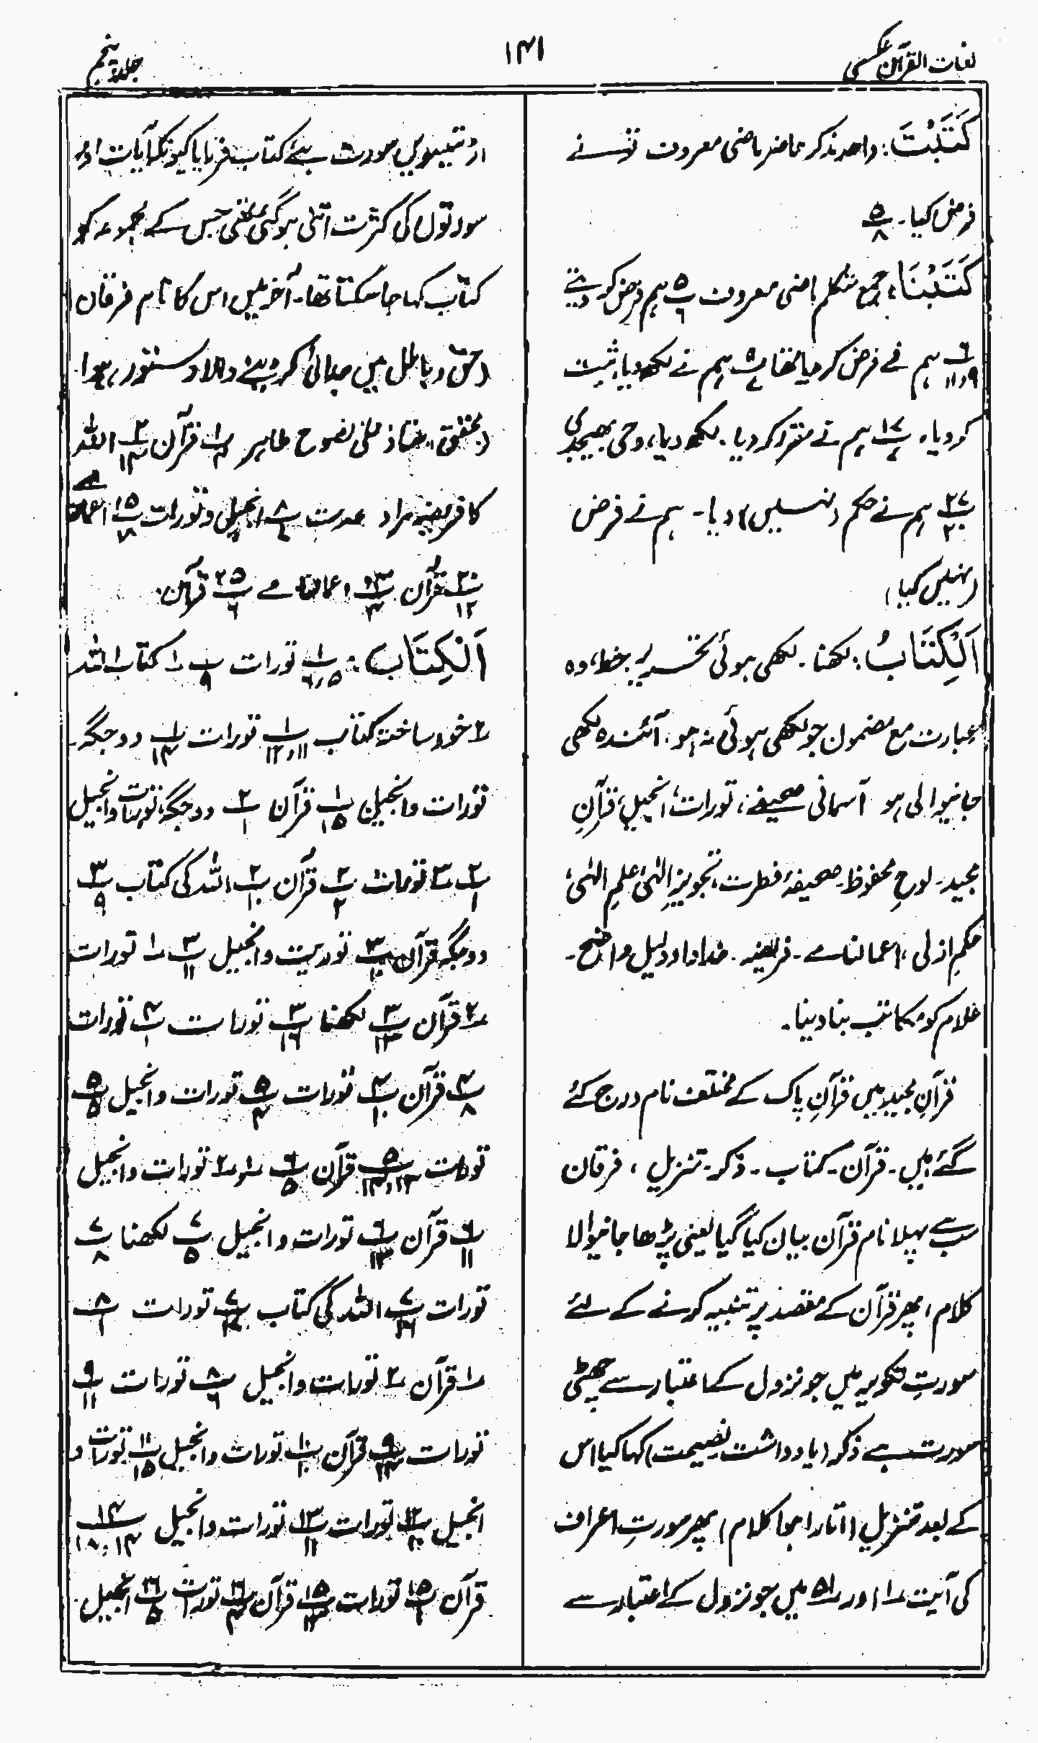 لغات القرآن عکسی
۱۴۱
جلد پنجم
کَتَبْتَ: واحد مذکر حاضر ماضی معروف تو نے
فرض کیا۔ ۵/۸
کَتَبْنَا، جمع متکلم ماضی معروف ۵/۶ ہم فرض کر دیتے
۶/۹،۱۱ ہم نے فرض کر دیا تھا ہم نے لکھ دیا، ثبت
کر دیا، ۱۷/۷ ہم نے مقرر کر دیا۔ لکھ دیا، وحی بھیجدی
۲۷/۲۰ ہم نے حکم (نہیں) دیا۔ ہم نے فرض
(نہیں کیا)
اَلْکِتَابُ: لکھنا۔ لکھی ہوئی تحریر، خط، وہ
عبارت مع مضمون جو لکھی ہوئی نہ ہو۔ آئندہ لکھی
جانیوالی ہو آسمانی صحیفے، تورات، انجیل، قرآنِ
مجید۔ لوحِ محفوظ۔ صحیفۂ فطرت، تجویزِ الٰہی، علمِ الٰہی،
حکمِ ازلی، اعمالنامے۔ فریضہ۔ خداداد دلیل واضح۔
غلام کو مکاتب بنا دینا۔
قرآنِ مجید میں قرآنِ پاک کے مختلف نام درج کئے
گئے ہیں۔ قرآن۔ کتاب۔ ذکر۔ تنزیل، فرقان
سب سے پہلا نام قرآن بیان کیا گیا یعنی پڑھا جانیوالا
کلام، پھر قرآن کے مقصد پر تنبیہ کرنے کے لئے
سورتِ تکویر میں جو نزول کے اعتبار سے چھٹی
سورت ہے ذکر (یادداشت نصیحت) کہا گیا اس
کے بعد تنزیل (اتارا ہوا کلام) پھر سورتِ اعراف
کی آیت ۱ اور ۵۱ میں جو نزول کے اعتبار سے
سورت ہے کتاب فرمایا کیونکہ آیات اور
سورتوں کی کثرت اتنی ہو گئی تھی جس کے مجموعہ کو
کتاب کہا جا سکتا تھا۔ آخر میں اس کا نام فرقان
(حق و باطل میں جدائی کر دینے والا دستور) ہوا
قرآن ۳/۱۴ اللہ
کا فریضہ مراد عدت ۸/۷ انجیل و تورات ۱۵/۷
۲۰/۱۲ قرآن اعمالنامے ۲۵/۶ قرآن۔
اَلْکِتَاب: ۱/۵،۶ تورات ۱/۹ ۱ کتاب اللہ
۲ خود ساختہ کتاب ۱/۱۱،۱۲ تورات ۱/۱۴ دو جگہ۔
تورات و انجیل ۱/۱۵ قرآن ۲/۱ دو جگہ تورات و انجیل
۲/۱ ۳ تورات ۲/۲ قرآن ۲/۱۰ اللہ کی کتاب ۳/۹
دو جگہ قرآن توریت و انجیل ۳/۱۱ ۱ تورات
۲ قرآن ۳/۱۳ لکھنا ۳/۱۶ تورات ۴/۱ تورات
۴/۸ قرآن ۴/۱۰ تورات ۵/۴ تورات و انجیل ۵/۵
تورات ۵/۱۳،۱۴ قرآن ۶/۵ ۱ و ۲ تورات و انجیل
۶/۱۱ قرآن ۶/۱۳ تورات و انجیل ۷/۵ لکھنا ۷/۸
تورات ۷/۱۶ اللہ کی کتاب تورات ۸/۱
۱ قرآن ۲ تورات و انجیل ۸/۶ تورات ۹/۱۱
تورات قرآن ۱۰/۱۰ تورات و انجیل ۱۱/۱۵ تورات و
انجیل تورات ۱۳/۱۱ تورات و انجیل ۱۴/۱۴،۱۸
قرآن ۱۵/۱ تورات ۱۵/۱۳ قرآن تورات ۱۶/۵ انجیل